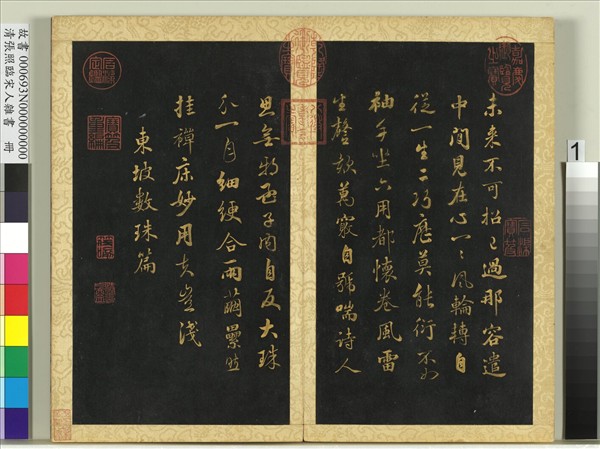 未来不可招已過那容遣
中間見在心一一風輪轉自
從一生二巧歷莫能衍不如
袖手坐六用都懷卷風雷
生謦欬萬竅自號喘詩人
思無邪孟子内自反大珠
分一月細綆合兩繭纍然
挂禪床妙用夫豈淺
東坡數珠篇
故書 000693N000000000
清張照臨宋人雜書 冊
1